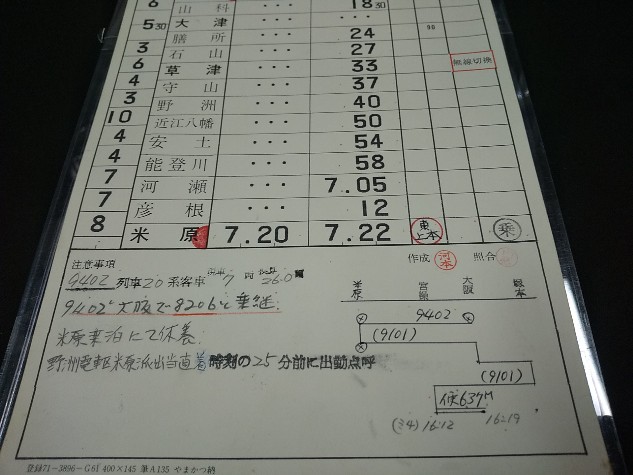 6 山科 ... 18 30
5 30 大津
膳所 ... 24
3 石山 ... 27
6 草津 ... 33 無線切換
4 守山 ... 37
3 野洲 ... 40
10 近江八幡 ... 50
4 安土 ... 54
4 能登川 ... 58
7 河瀬 ... 7.05
7 彦根 ... 12
8 米原 7.20 7.22 乗
注意事項
作成 河本 照合
9402 列車20系客車 7両 26.0
9402は大阪で8206と乗継
米原 宮原 大阪
9402
米原乗泊にて休養
(9101)
野洲電車区米原派出当直着時刻の25分前に出勤点呼
(9101)
候637M
(34) 16:12 16:19
登録71-3896-G61 400×145 筆A135 やまかつ納